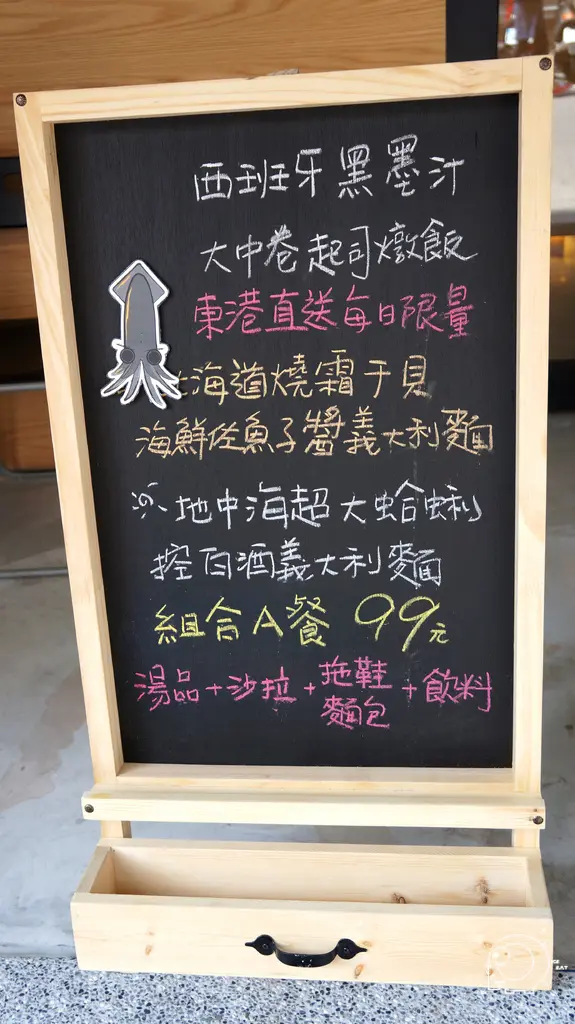 西班牙黑墨汁
大中卷起司燉飯
東港直送每日限量
北海道燒霜干貝
海鮮佐魚子醬義大利麵
※地中海超大蛤蜊
控白酒義大利麵
組合A餐 99元
湯品+沙拉+拖鞋麵包+飲料